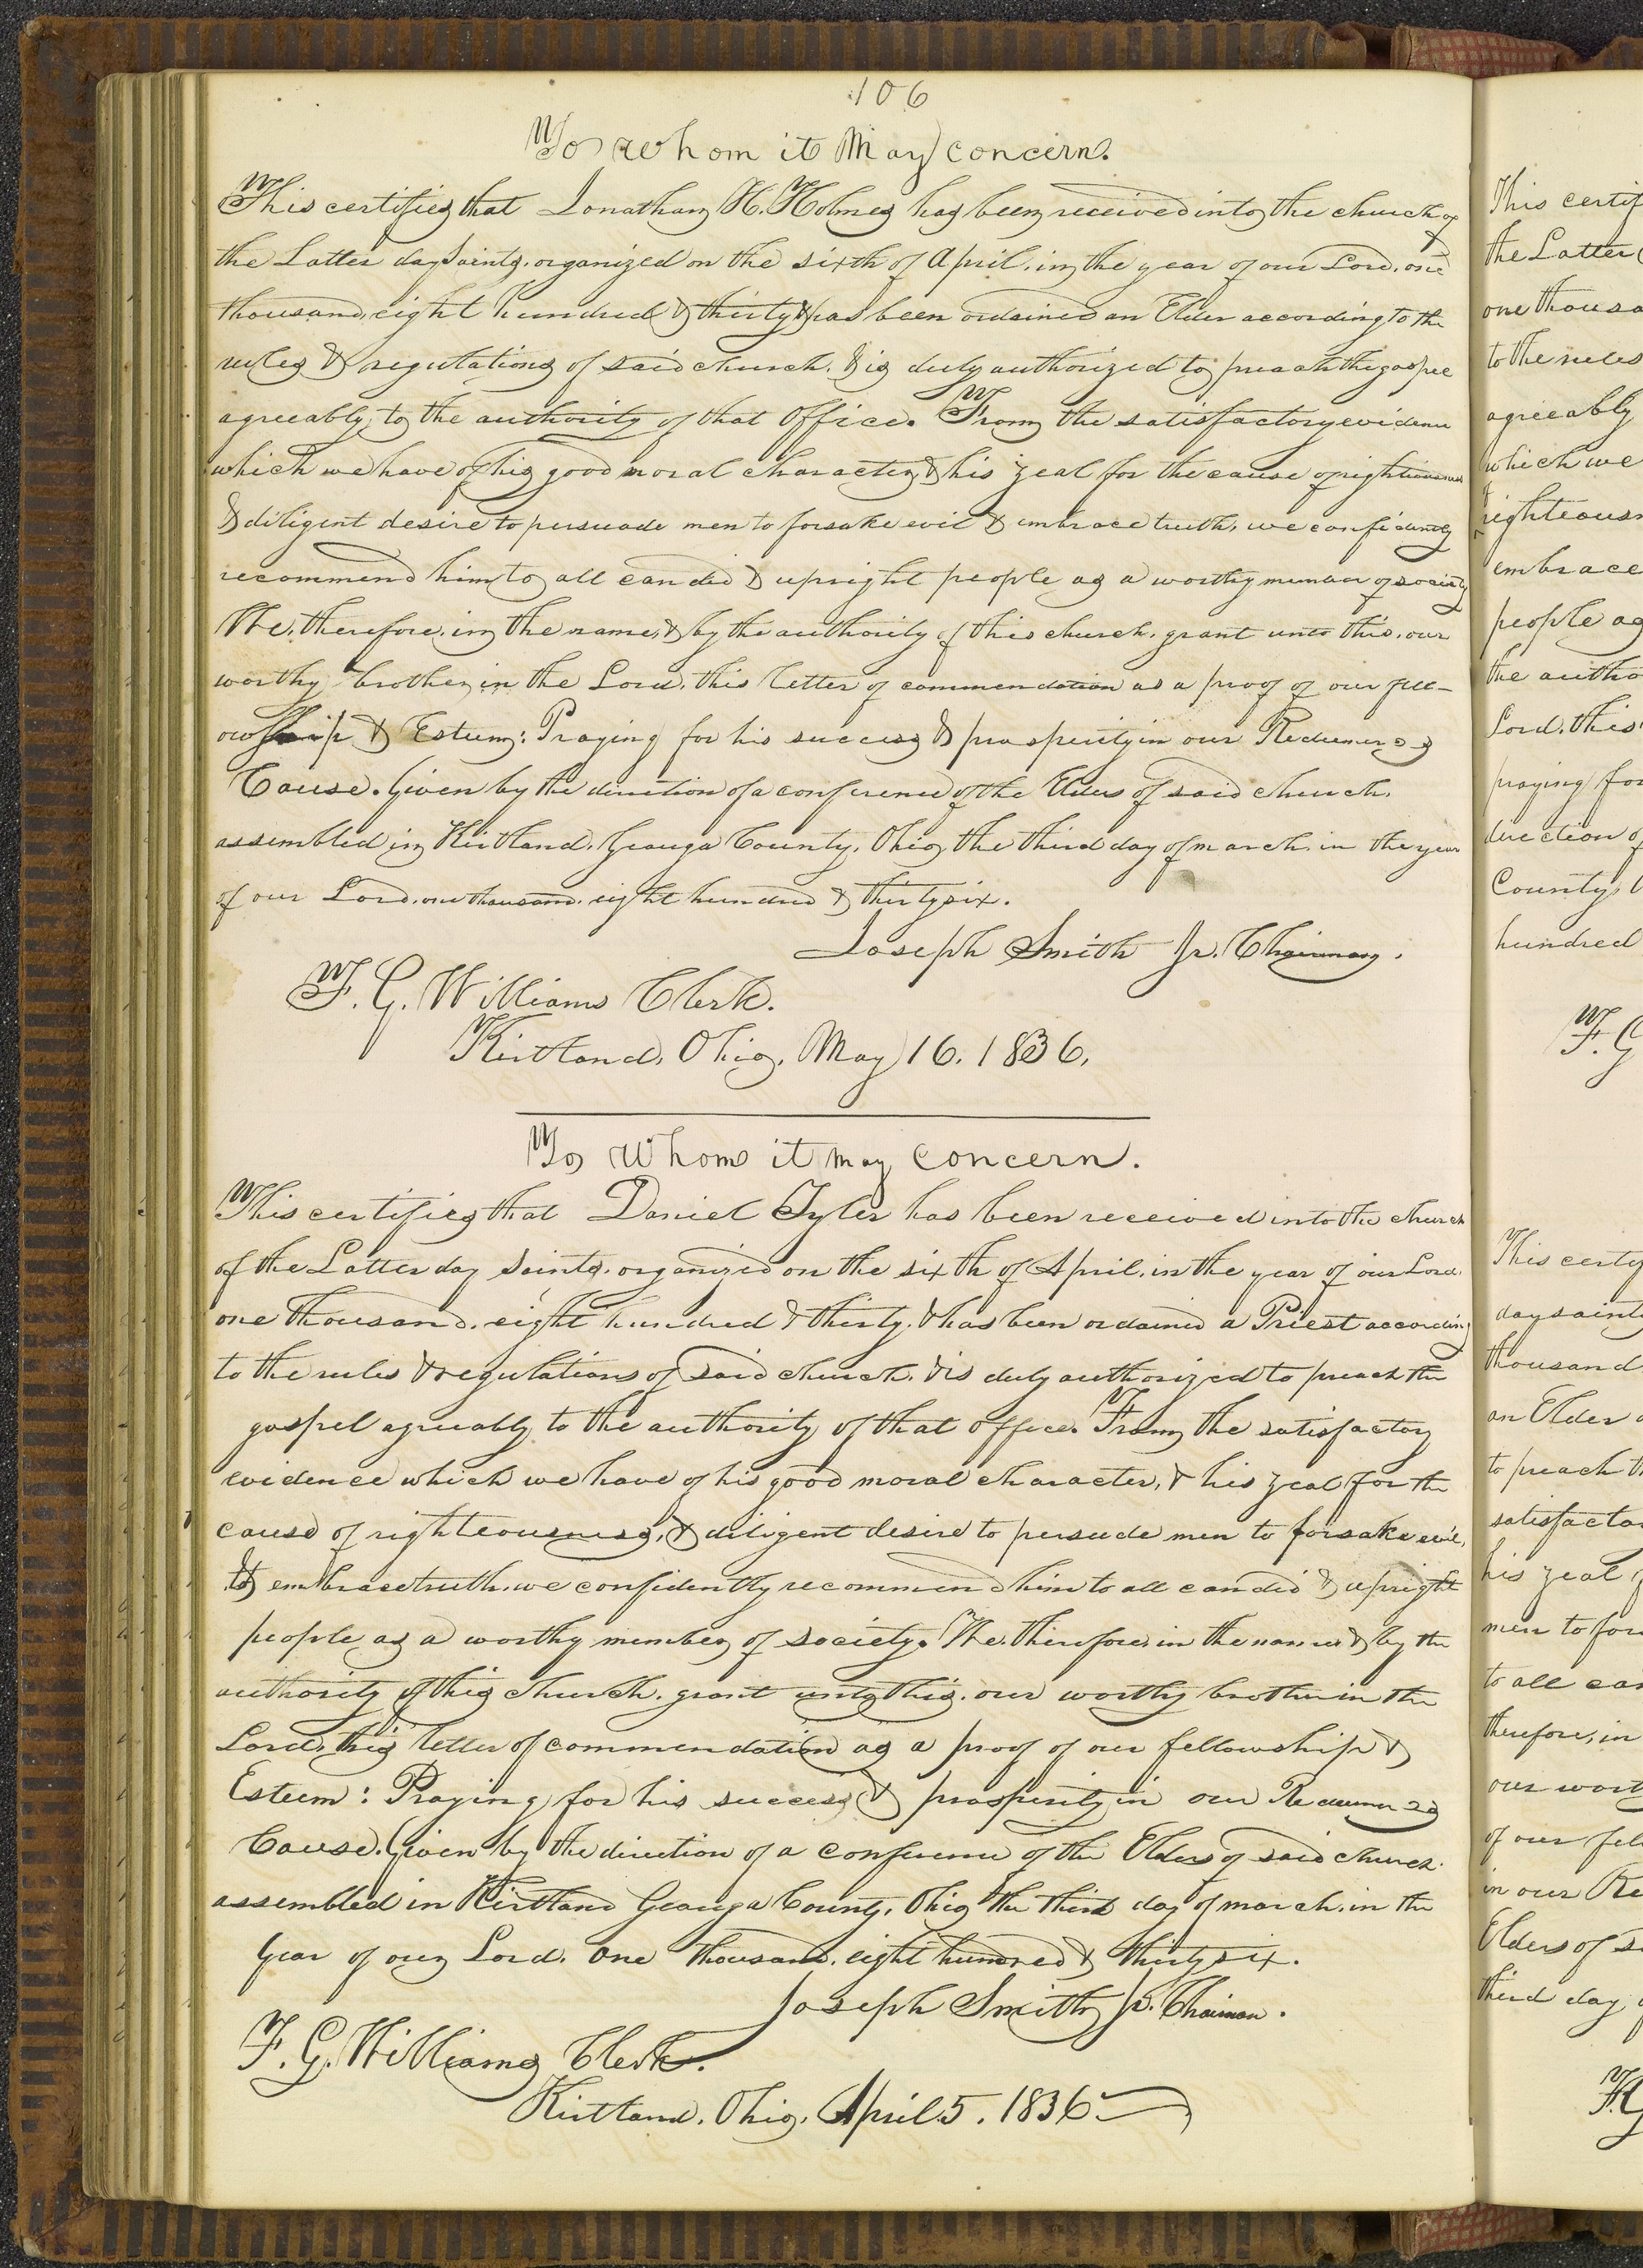 106
To whom it May concern.
This certifies that Jonathan H. Holmes has been received into the church of
the Latter day Saints, organized on the sixth of April, in the year of our Lord, one
thousand, eight hundred & thirty & has been ordained an Elder according to the
rules & regulations of said church, & is duly authorized to preach the gospel
agreeably to the authority of that Office. From the satisfactory evidence
which we have of his good moral character, & his zeal for the cause of righteousness
& diligent desire to persuade men to forsake evil & embrace truth, we confidently
recommend him to all candid & upright people as a worthy member of society
We, therefore, in the name, & by the authority of this church, grant unto this, our
worthy brother, in the Lord, this letter of commendation as a proof of our fell-
owship & Esteem: Praying for his success & prosperity in our Redeemers
Cause. Given by the direction of a conference of the Elders of said church,
assembled in Kirtland, Geauga County, Ohio, the third day of march, in the year
of our Lord, one thousand, eight hundred & thirty six.
Joseph Smith Jr. Chairman.
F. G. Williams Clerk.
Kirtland, Ohio, May 16. 1836.
To Whom it may concern.
This certifies that Daniel Tyler has been received into the church
of the Latter day Saints, organized on the sixth of April, in the year of our Lord,
one thousand, eight hundred & thirty, & has been ordained a Priest according
to the rules & regulations of said church, & is duly authorized to preach the
gospel agreeably to the authority of that office. From the satisfactory
evidence which we have of his good moral character, & his zeal for the
cause of righteousness, & diligent desire to persuade men to forsake evil,
& embrace truth, we confidently recommend him to all candid & upright
people as a worthy member of society. We, therefore, in the name & by the
authority of this church, grant unto this, our worthy brother in the
Lord, this letter of commendation as a proof of our fellowship &
Esteem: Praying for his success & prosperity in our Redeemers
Cause. Given by the direction of a conference of the Elders of said church,
assembled in Kirtland Geauga County, Ohio, the third day of march, in the
year of our Lord, one thousand, eight hundred & thirty six.
Joseph Smith Jr. Chairman.
F. G. Williams Clerk.
Kirtland, Ohio, April 5. 1836
This certif
the Latter
one thousa
to the rules
agreeably
which we
righteousn
embrace
people as
the autho
Lord, this
praying for
direction of
County,
hundred
F. G
This certify
day saints
thousand
an Elder
to preach th
satisfactor
his zeal
men to for
to all can
therefore, in
our wort
of our fell
in our Re
Elders of s
third day
F. G